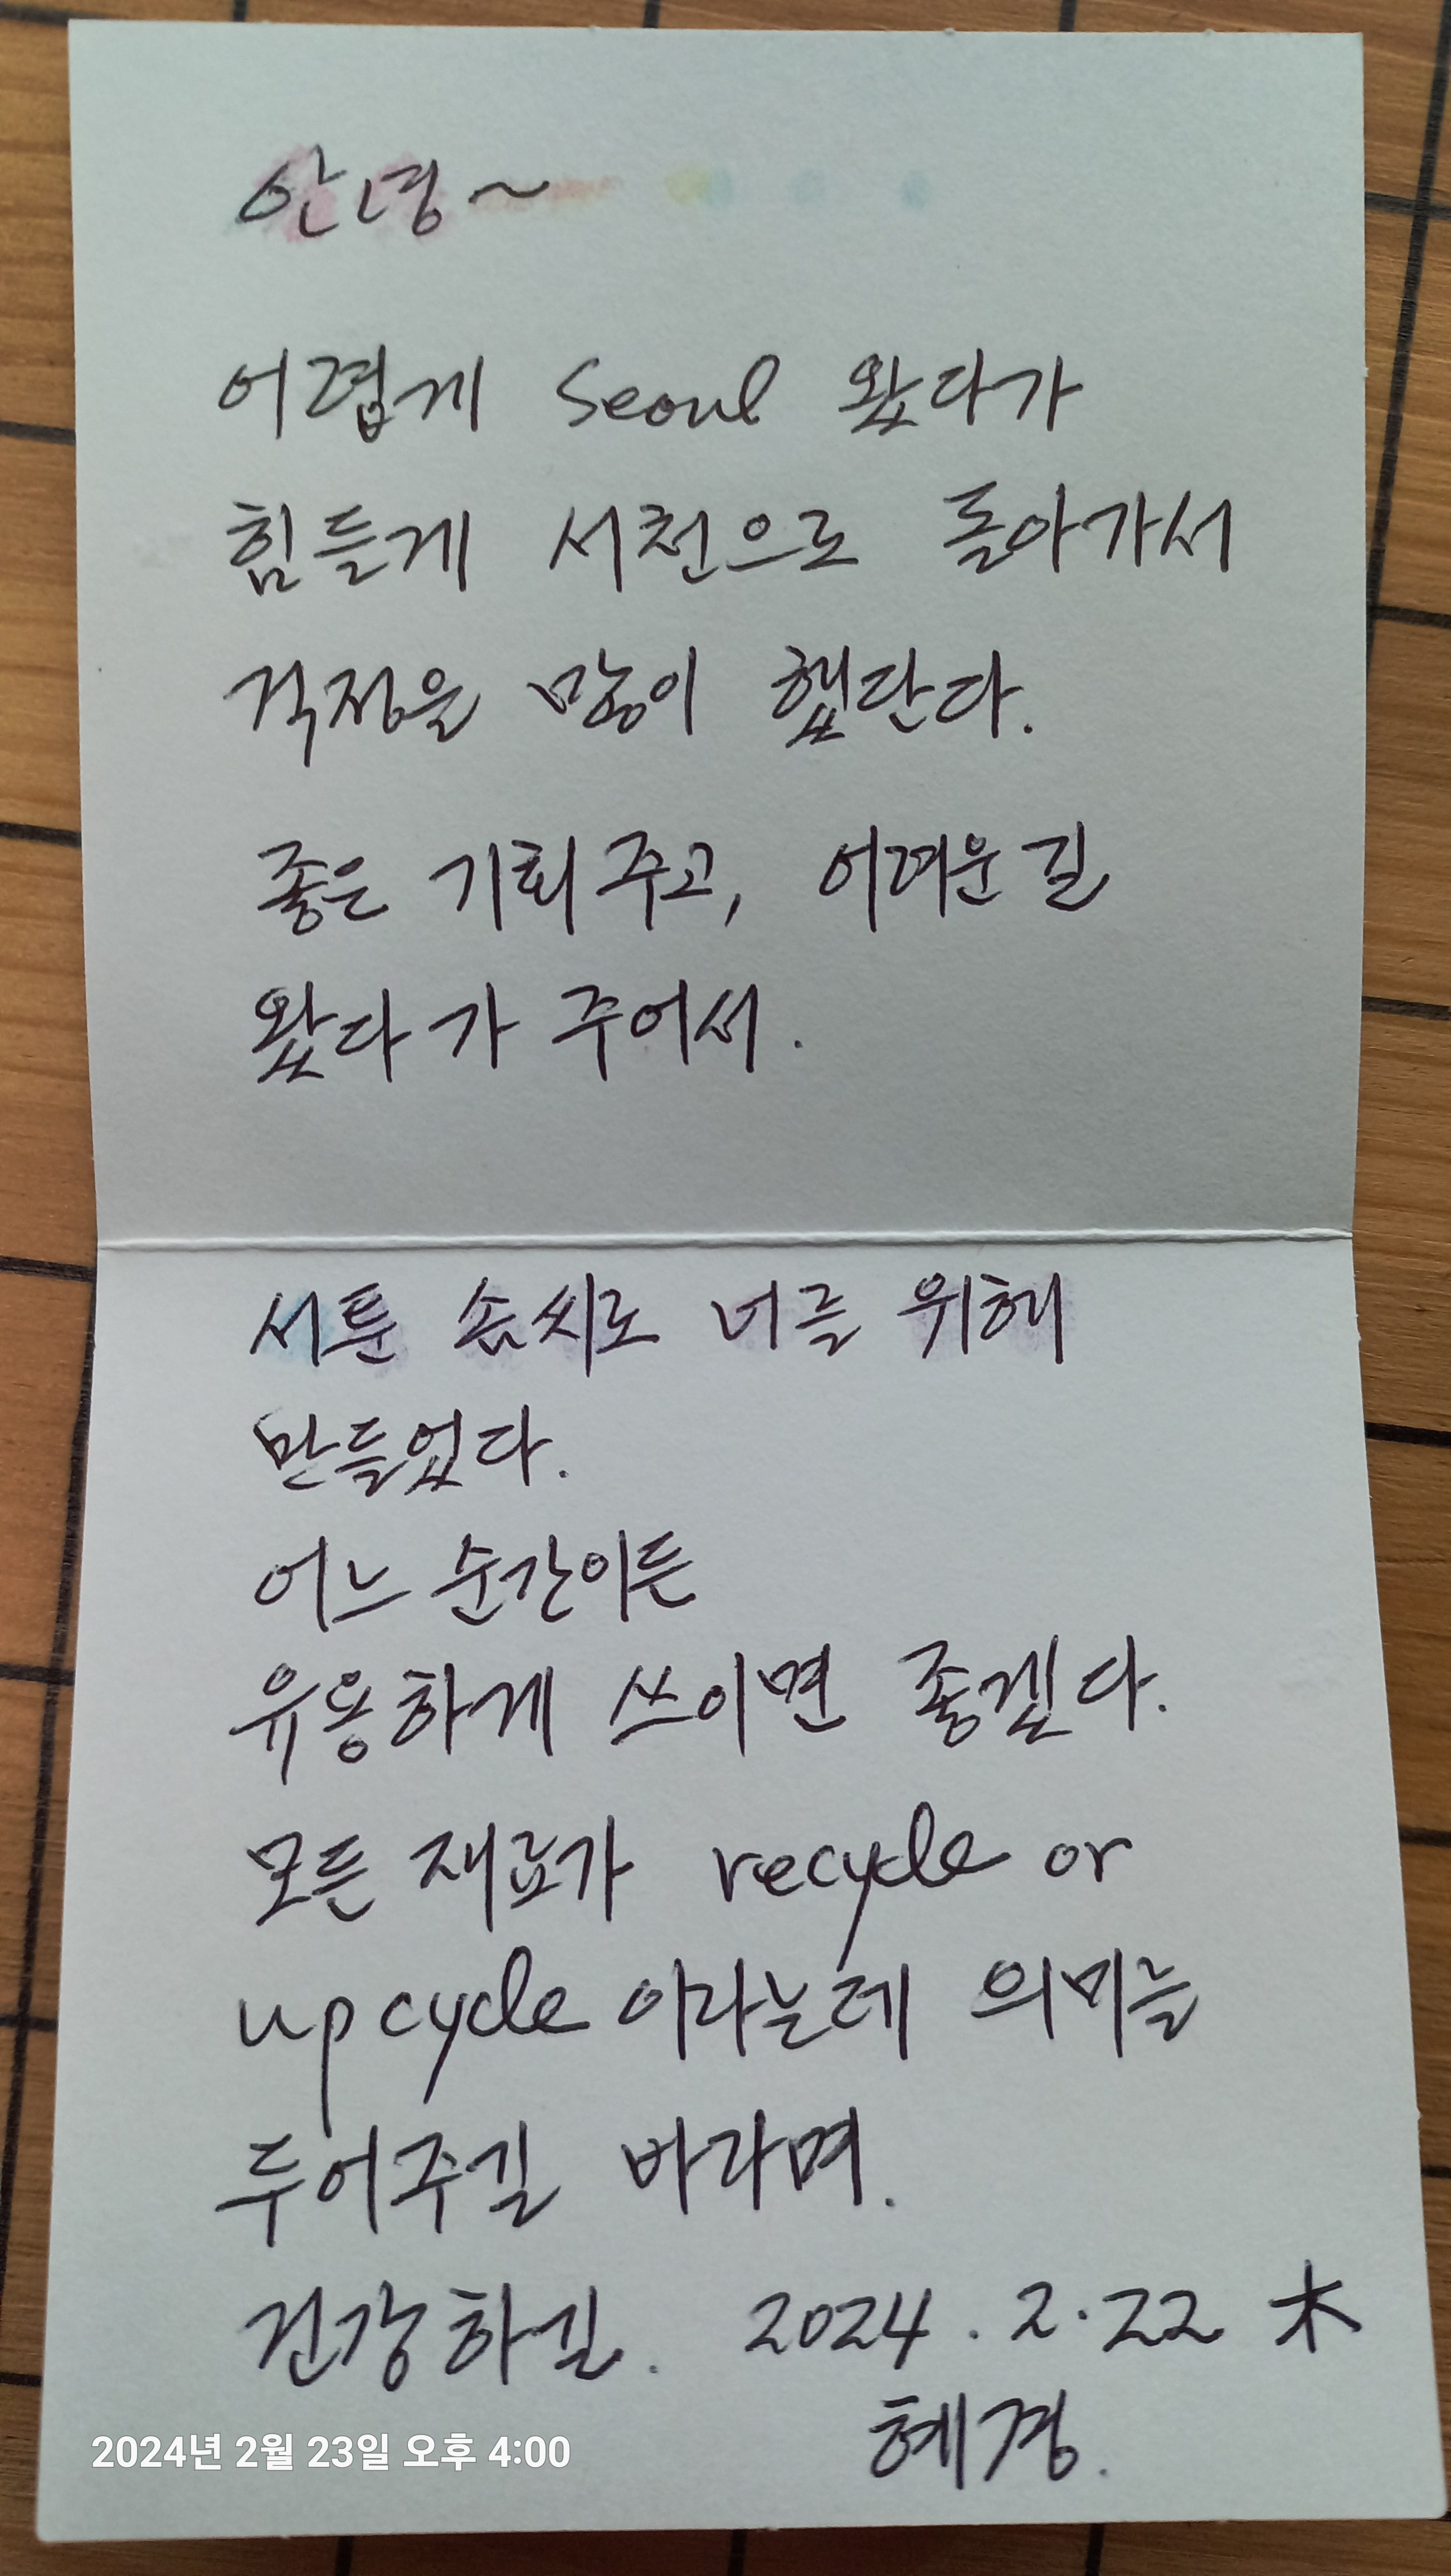 안녕~
어렵게 Seoul 왔다가
힘들게 서천으로 돌아가서
걱정을 많이 했단다.
좋은 기회 주고, 어려운 길
왔다가 주어서.
서툰 솜씨로 너를 위해
만들었다.
어느 순간이든
유용하게 쓰이면 좋겠다.
모든 재료가 recycle or
upcycle 이라는데 의미를
두어주길 바라며.
건강하길. 2024. 2. 22 木
혜경.
2024년 2월 23일 오후 4:00